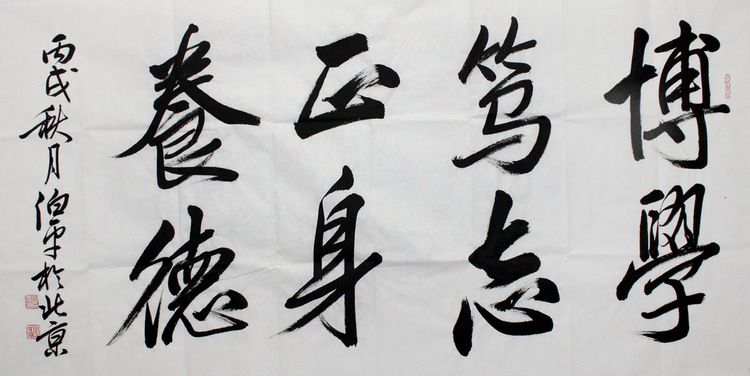 博學
篤志
正身
養德
丙戌秋月伯平於北京